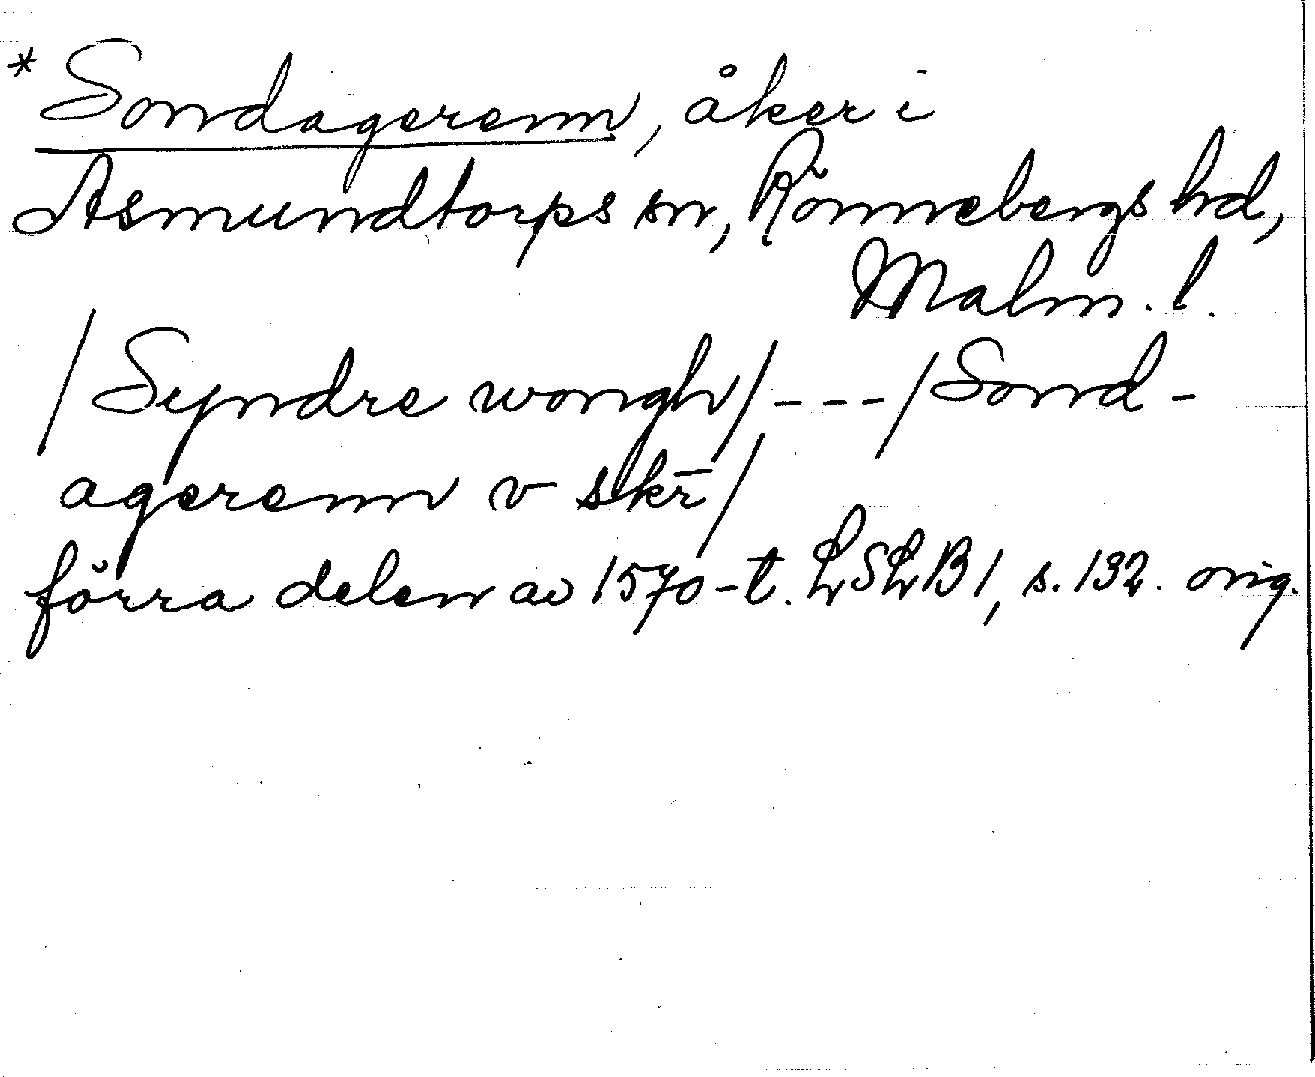 * Sondagerenn, åker i
Asmundtorps sn, Rönnebergs hd,
Malm. l.
/Syndre wongh/ - - - /Sond-
agerenn v skr̄/
förra delen av 1570-t. LSLB1, s. 132. orig.